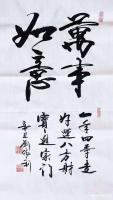 萬事
如意
一年四季走
好運八方財
寶進家门